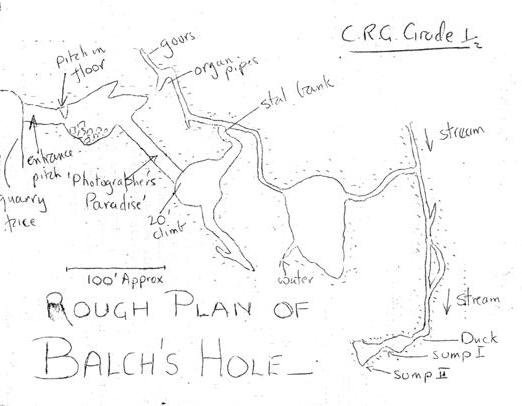 C.R.G. Grade 1/2
goors
organ pipes
Pitch in
floor
stal bank
stream
entrance
pitch
quarry
face
'Photographer's
Paradise'
20'
climb
water
100' Approx
stream
Duck
sump I
sump II
ROUGH PLAN OF
BALCH'S HOLE